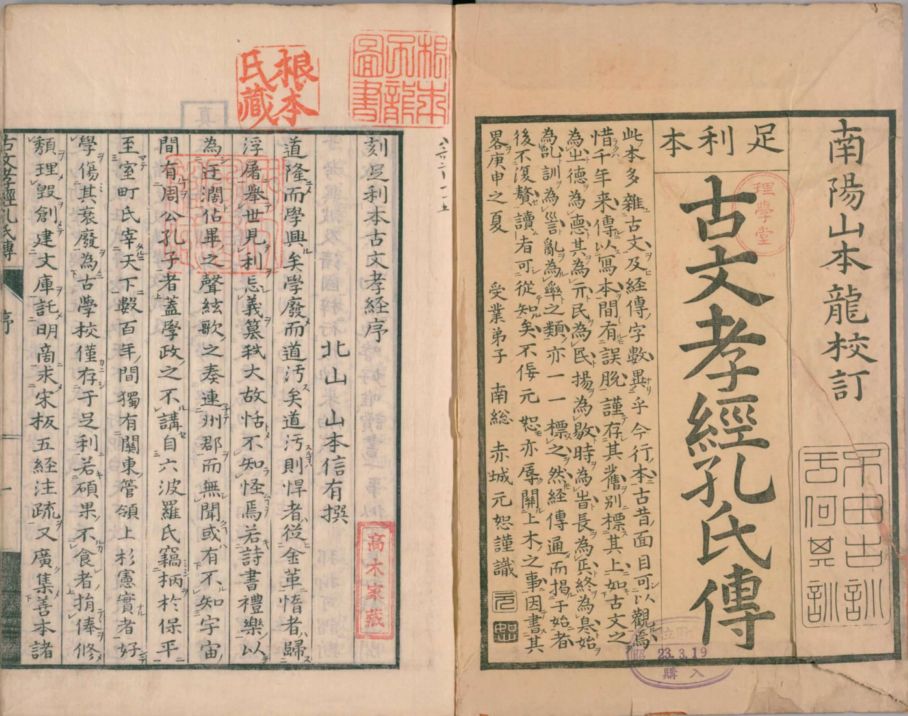 南陽山本龍校訂
不由古訓
于何其訓
足利本
理學堂
古文孝經孔氏傳
此本多雜古文及經傳字數異乎今行本古昔面目可以觀焉
惜千年來傳以寫本間有誤脫謹存其舊別標其上如古文之
為㞢德為悳其為亓民為 揚為敭時為旹長為兏終為 始
為 訓為 亂為 之類亦一一標之然經傳通而揭于始者
後不復贅讀者可從知矣不侫元恕亦辱關上木之事因書其
畧庚申之夏 受業弟子 南総 赤城元恕謹識
元恕
23.3.19
購入
根本
不龍
圖書
根本
氏藏
刻足利本古文孝經序
北山 山本信有撰
高木家蔵
道隆而學興矣學廢而道汚矣道汚則悍者衽金革惰者歸
浮屠擧世見利忘義墓弑大故恬不知怪焉若詩書禮樂以
為迂濶佔畢之聲絃歌之奏連州郡而無聞或有不知宇宙
間有周公孔子者蓋學政之不講自六波羅氏竊柄於保平
至室町氏宰天下數百年間獨有關東管領上杉憲實者好
學傷其衰廢為古學校僅存于足利若碩果不食者捐俸修
頹理毀創建文庫託明商求宋板五經注疏又廣集善本諸
古文孝經孔氏傳
序
一